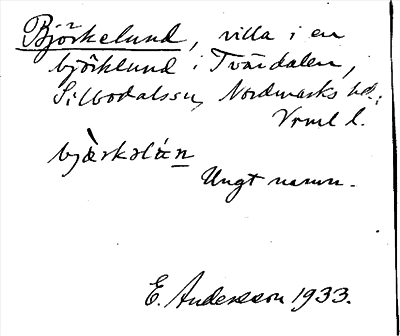 Björkelund, villa i en
björklund i Tvärdalen,
Silbodalssn, Nordmarks hd.;
Vrml l.
Ungt namn.
E. Andersson 1933.